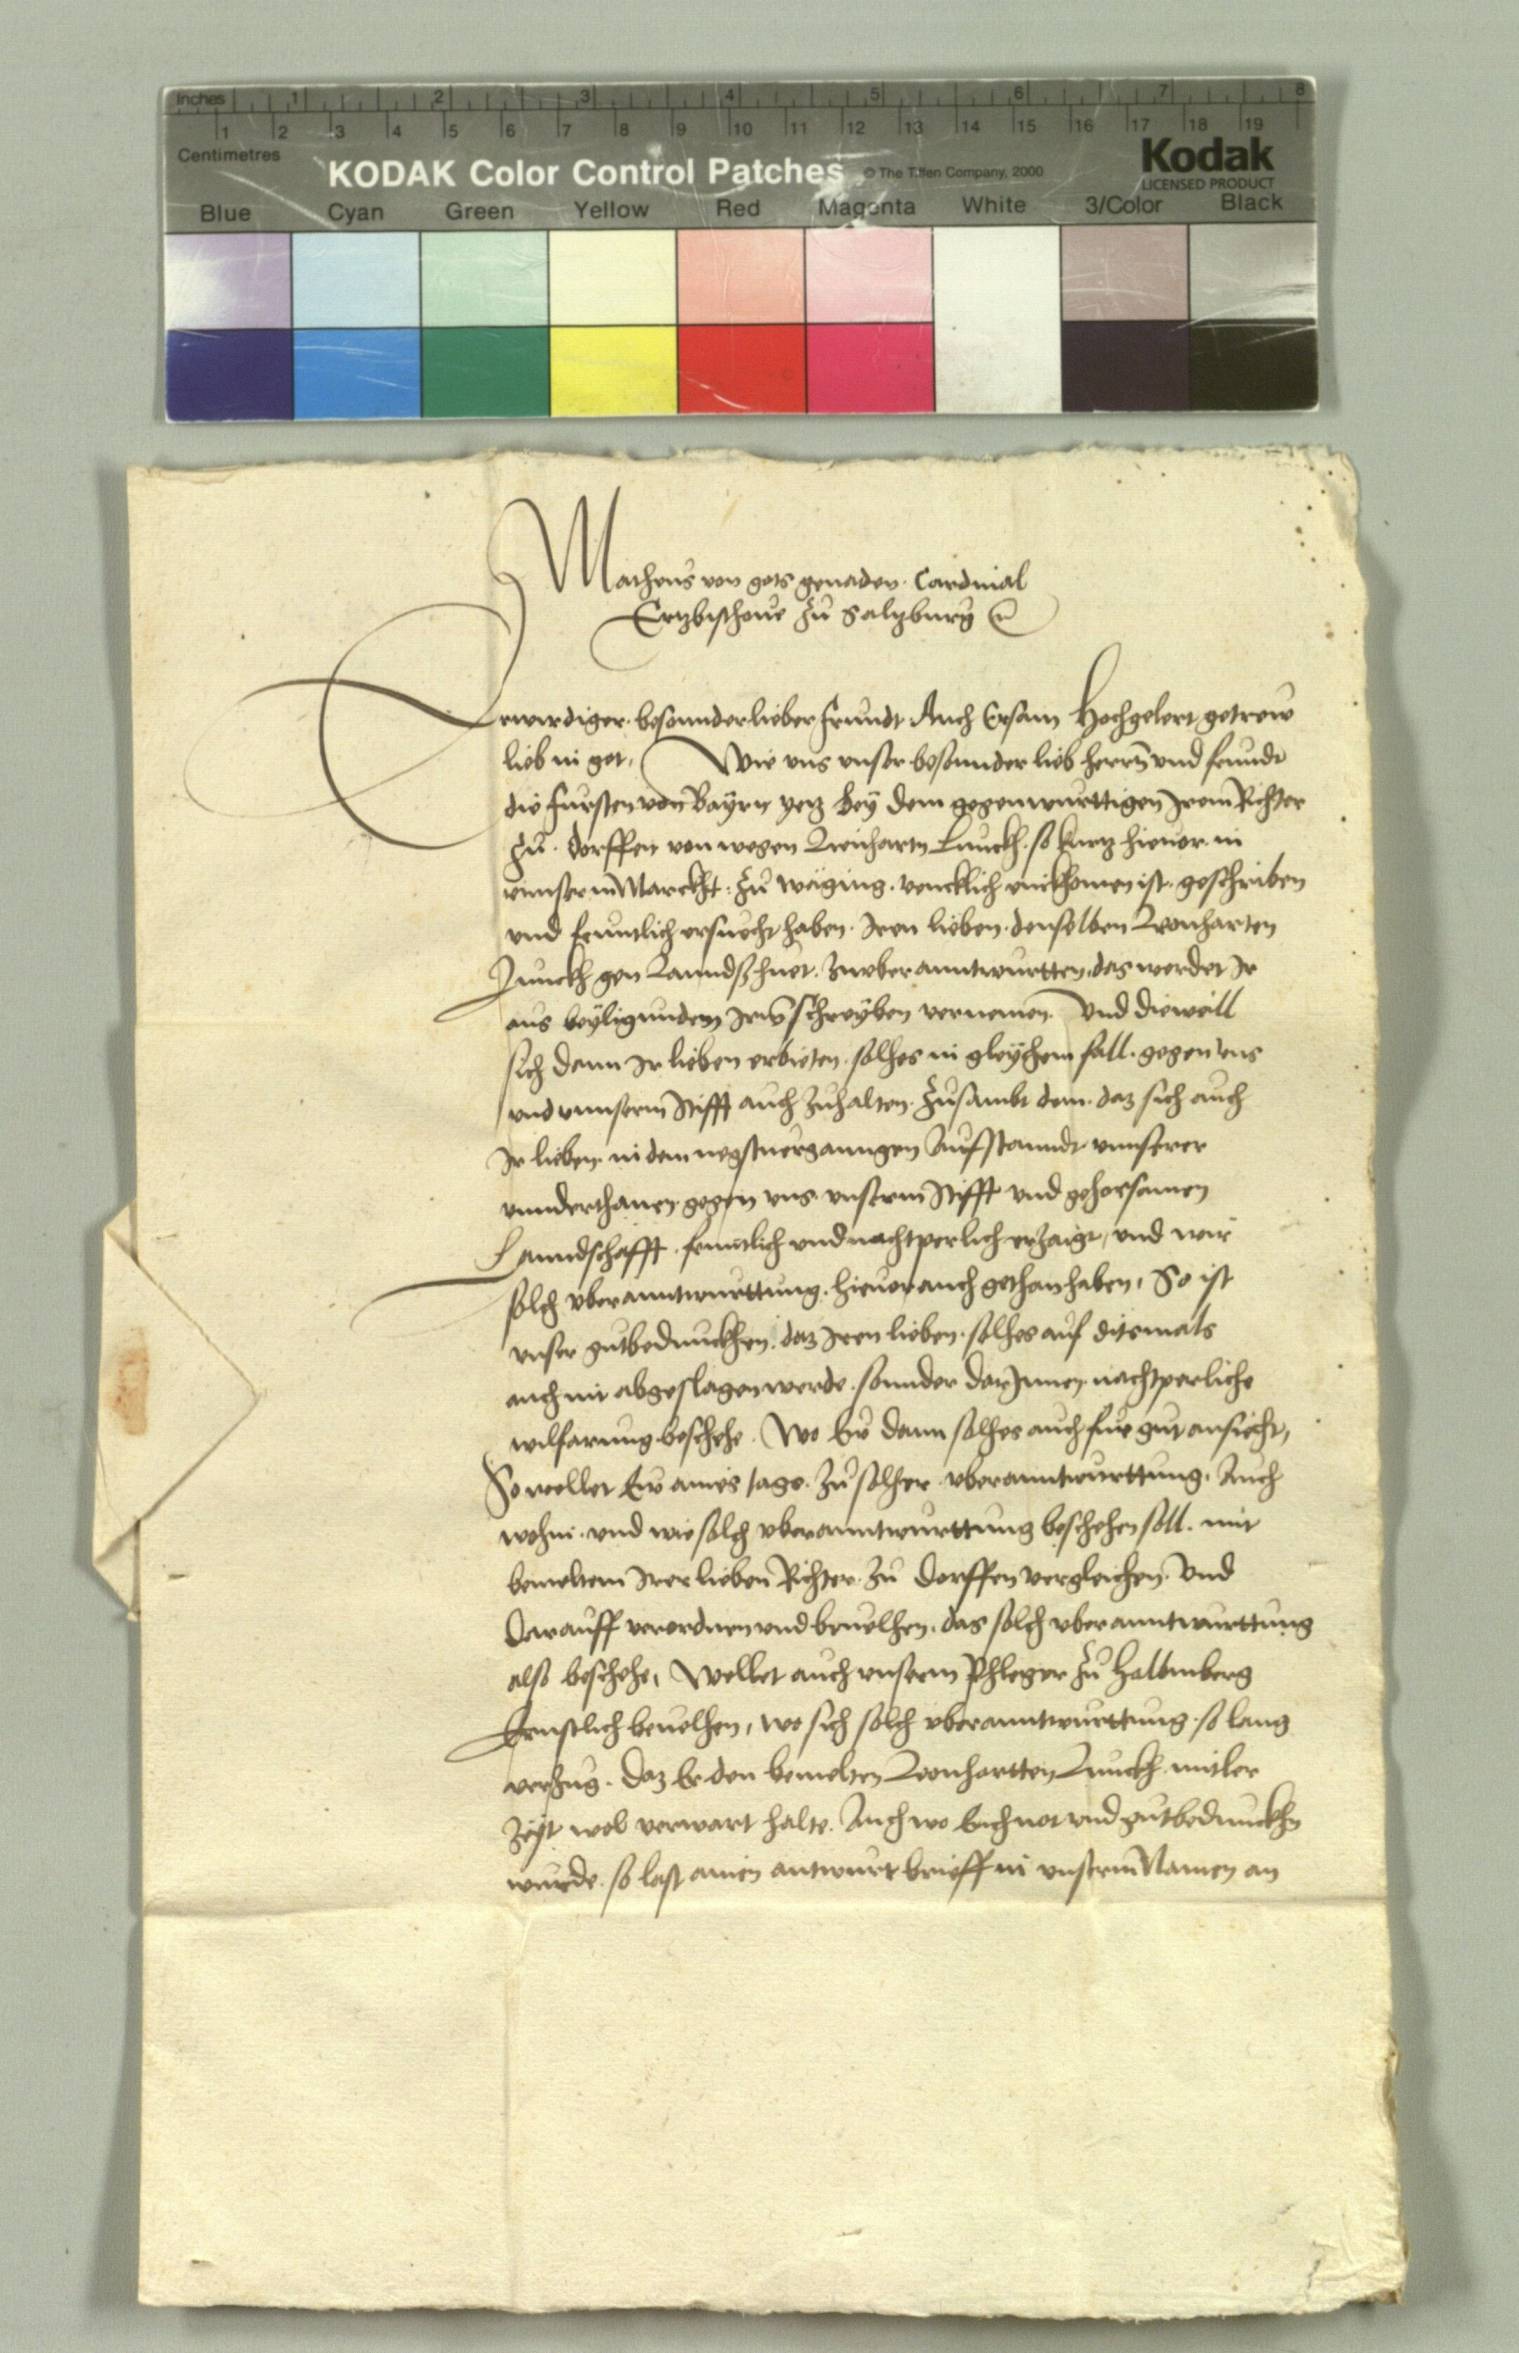 Inches 1 2 3 4 5 6 7 8
1 2 3 4 5 6 7 8 9 10 11 12 13 14 15 16 17 18 19
Centimetres
KODAK Color Control Patches © The Tiffen Company, 2000 Kodak
LICENSED PRODUCT
Blue Cyan Green Yellow Red Magenta White 3/Color Black
Matheus von gots genaden Cardinal
Ertzbischoue zů Saltzburg
Erwirdiger besonnder lieber frundt Auch Ersam Hochgelert getrew
lieb in got. Wie vns vnser besonnder lieb herrn vnd frundt
die fursten von Bayrn yetz bey dem gegenwurttigen Irem Richter
zů dorffen von wegen Leonhartn so kurtz hieuor in
vnnserm Marckht zů Waging vencklich ist geschriben
vnd fruntlich ersuecht haben Iren lieben denselben Leonharten
gen Lanndßhuet zuuberanntwurtten das werdet Ir
aus beyligundem Irm schreyben vernemen Vnd dieweill
sich dann Ir lieben erbieten solhes in gleychem fall gegen vns
vnd vnnserm Stifft auch zuhalten zůsambt dem daz sich auch
Ir lieben in dem negstuergangen Aufstanndt vnnserer
vnnderthanen gegen vns vnserm Stifft vnd gehorsamen
Lanndschafft fruntlich vnd nachtperlich erzaigt, vnd wir
solch vberanntwurttung hieuor auch gethan haben, So ist
vnser gutbedunckhen daz Iren lieben solhes auf ditsmals
auch nit abgeslagen werde sonnder darInnen nachtperliche
wilfarung beschehe. Wo Ew dann solhes auch fur gut ansicht,
So wellet Ew aines tags zů solher vberanntwurttung. Auch
wohin vnd wie solch vberanntwurttung beschehen soll mit
bemeltem Irer lieben Richter zů Dorffen vergleichen Vnd
darauff verordnen vnd beuelhen, das solch vberanntwurttung
also beschehe, Wellet auch vnserm Phleger zů Halbmberg
Ernstlich beuelhen, wo sich solch vberanntwurttung so lang
verzug. Daz Er den bemelten Leonhartten mitler
Zeyt wol verwart halte. Auch wo Euch not vnd gutbedunckhn
wurde so last ainen antwurt brieff in vnserm Namen an